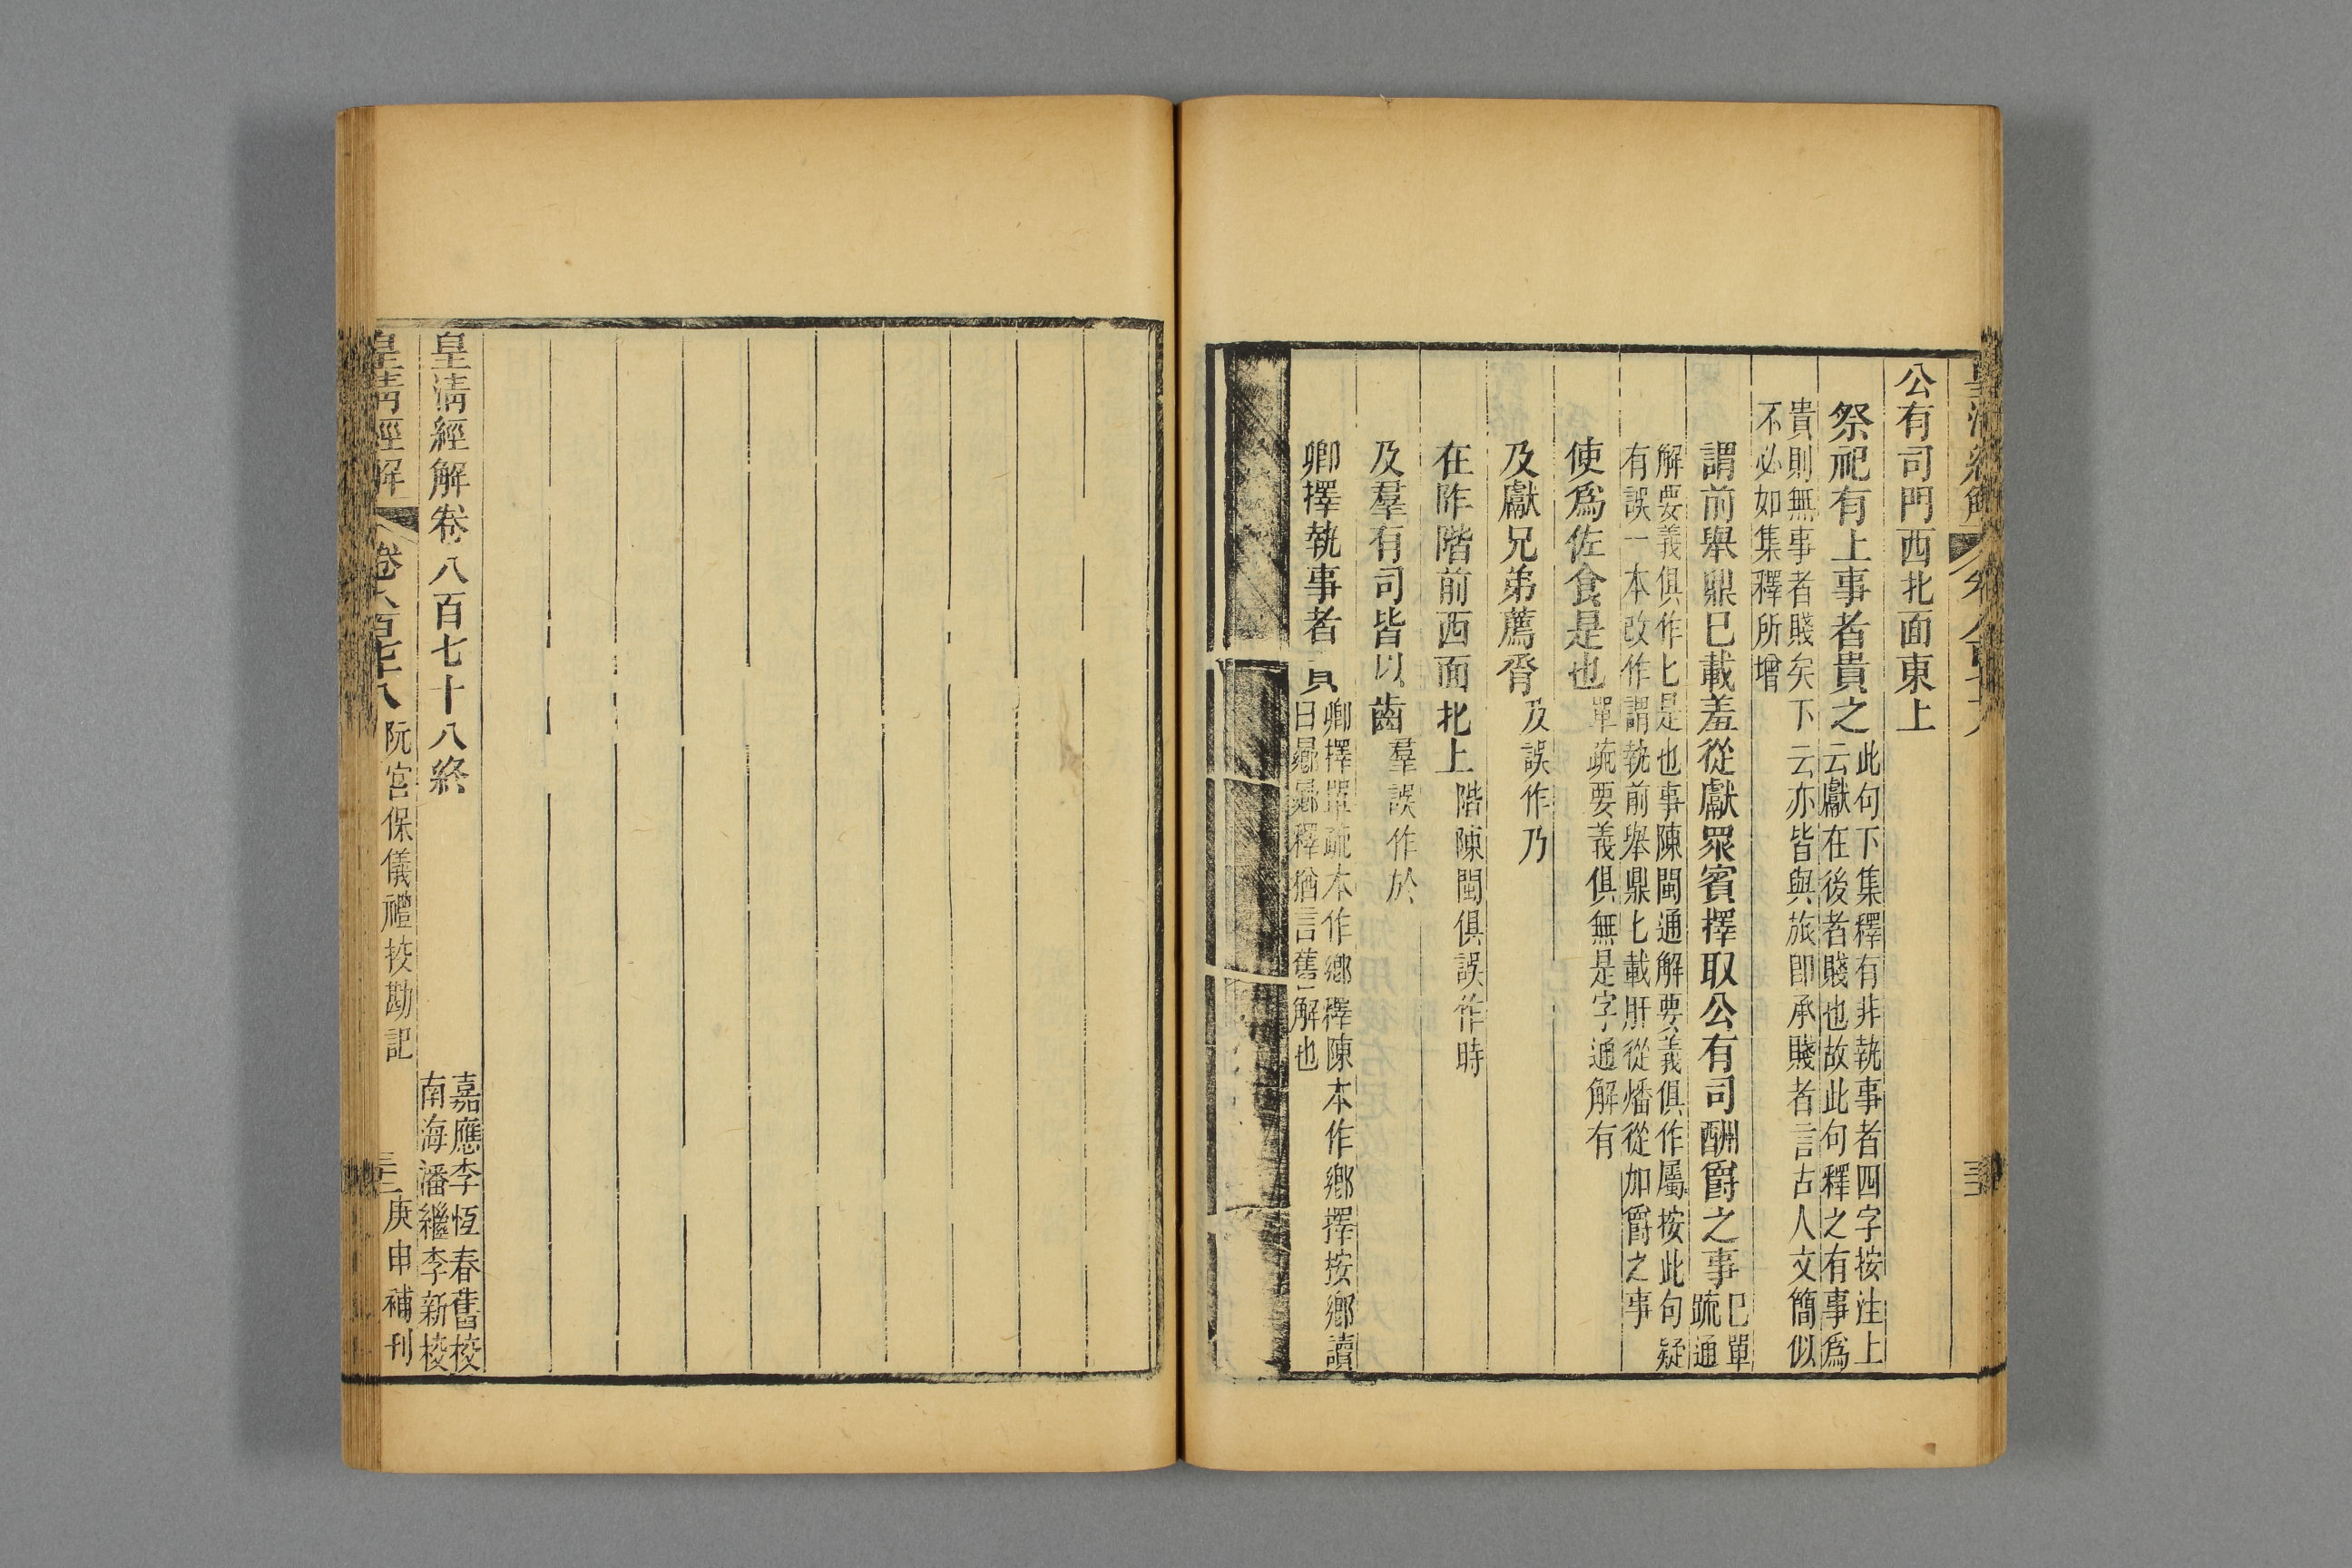 公有司門西北面東上
祭祀有上事者貴之此句下集釋有非執事者四字按注上
云獻在後者賤也故此句釋之有事爲
貴則無事者賤矣下云亦皆與旅卽承賤者言古人文簡似
不必如集釋所增
謂前舉鼎巳載羞從獻眾賓擇取公有司酬爵之事巳單
疏通
解要義俱作匕是也事陳閩通解要義俱作屬按此句疑
有誤一本改作謂執前舉鼎匕載肝從燔從加爵之事
使爲佐食是也單疏要義俱無是字通解有
及獻兄弟薦脀及誤作乃
在阼階前西面北上階陳閩俱誤作時
及羣有司皆以齒羣誤作於
卿擇執事者卿擇單疏本作鄉釋陳本作鄉擇按鄉讀
曰曏曏釋猶言舊解也
皇清經解卷八百七十八終
嘉應李恆春舊校
南海潘繼李新校
皇清經解
卷八百七十八
阮宮保儀禮挍勘記
庚申補刊